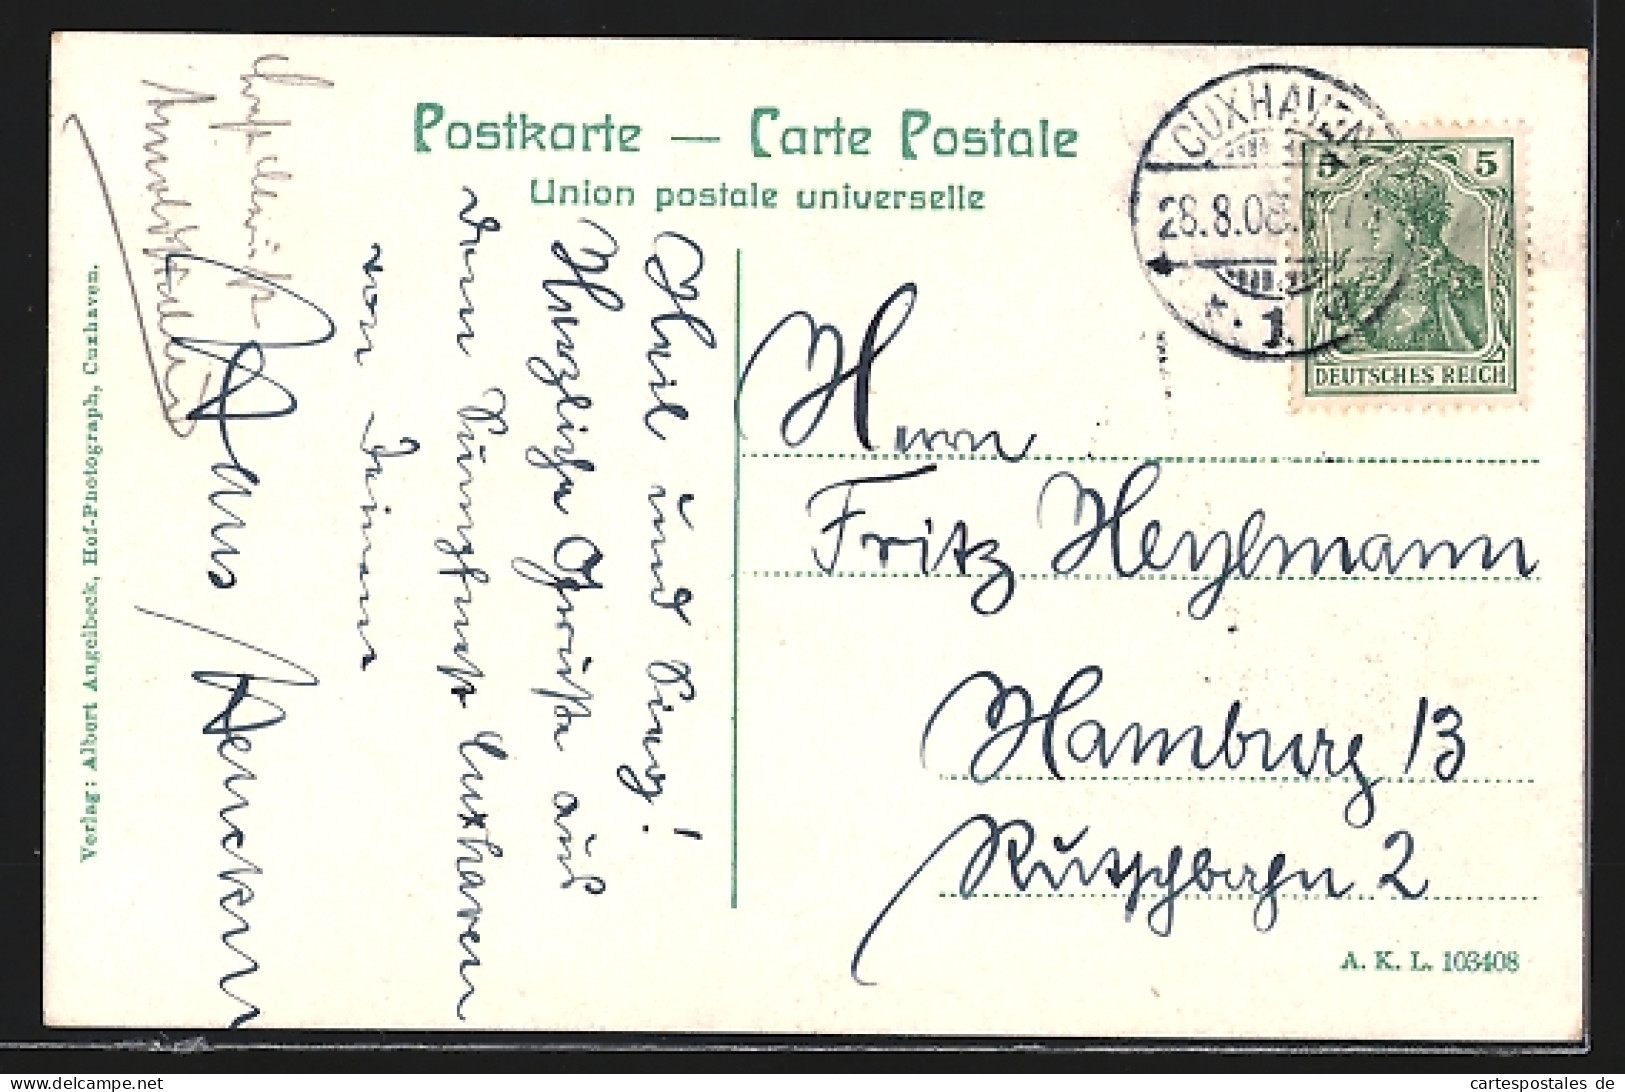 Postkarte — Carte Postale
Union postale universelle
CUXHAVEN
28.8.08.
* 1. a
5 5
DEUTSCHES REICH
Herrn
Fritz Heylmann
Hamburg 13
Rutschbahn 2
A. K. L. 103408
Heil und Sieg!
Herzliche Grüße aus
dem Kurmfest Cuxhaven
von Deinem
Verlag: Albert Angelbeck, Hof-Photograph, Cuxhaven.
cartespostales de